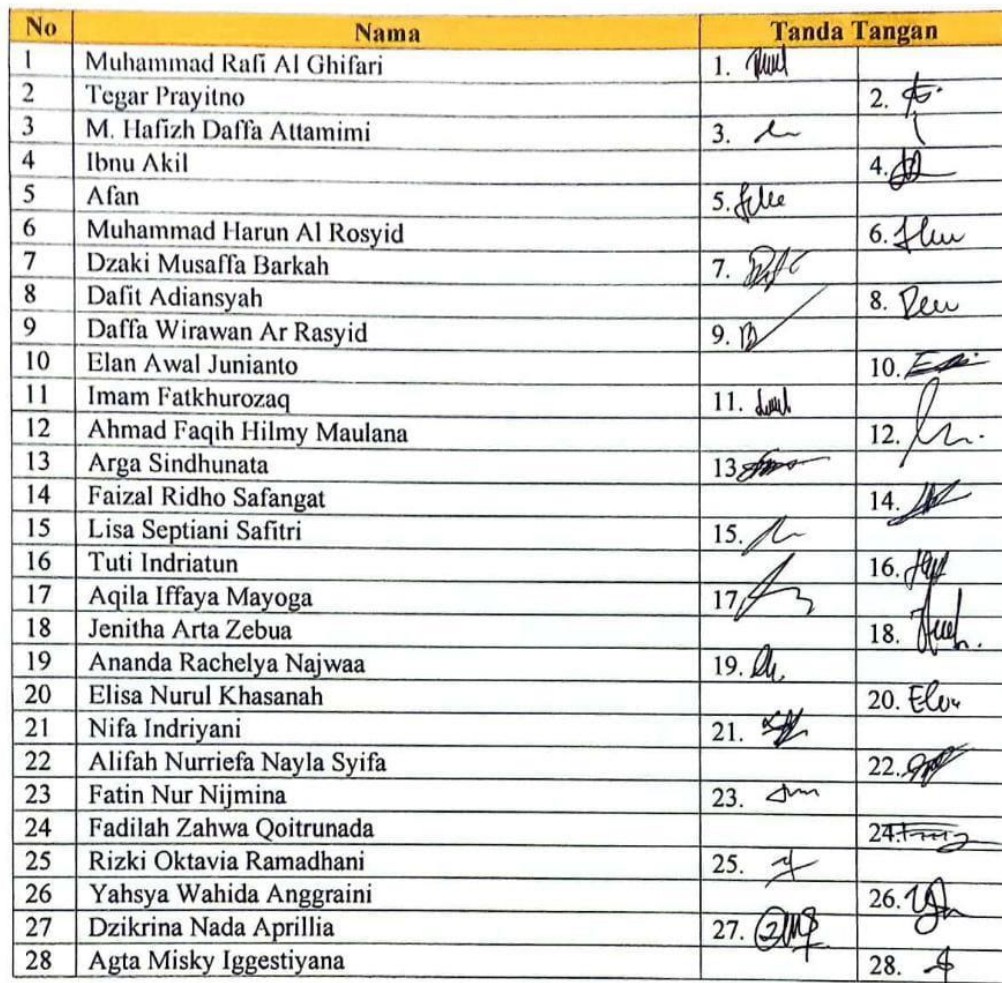 No Nama Tanda Tangan
1 Muhammad Rafi Al Ghifari 1.
2 Tegar Prayitno 2.
3 M. Hafizh Daffa Attamimi 3.
4 Ibnu Akil 4.
5 Afan 5.
6 Muhammad Harun Al Rosyid 6.
7 Dzaki Musaffa Barkah 7.
8 Dafit Adiansyah 8.
9 Daffa Wirawan Ar Rasyid 9.
10 Elan Awal Junianto 10.
11 Imam Fatkhurozaq 11.
12 Ahmad Faqih Hilmy Maulana 12.
13 Arga Sindhunata 13
14 Faizal Ridho Safangat 14.
15 Lisa Septiani Safitri 15.
16 Tuti Indriatun 16.
17 Aqila Iffaya Mayoga 17
18 Jenitha Arta Zebua 18.
19 Ananda Rachelya Najwaa 19.
20 Elisa Nurul Khasanah 20.
21 Nifa Indriyani 21.
22 Alifah Nurriefa Nayla Syifa 22.
23 Fatin Nur Nijmina 23.
24 Fadilah Zahwa Qoitrunada 24.
25 Rizki Oktavia Ramadhani 25.
26 Yahsya Wahida Anggraini 26.
27 Dzikrina Nada Aprillia 27.
28 Agta Misky Iggestiyana 28.